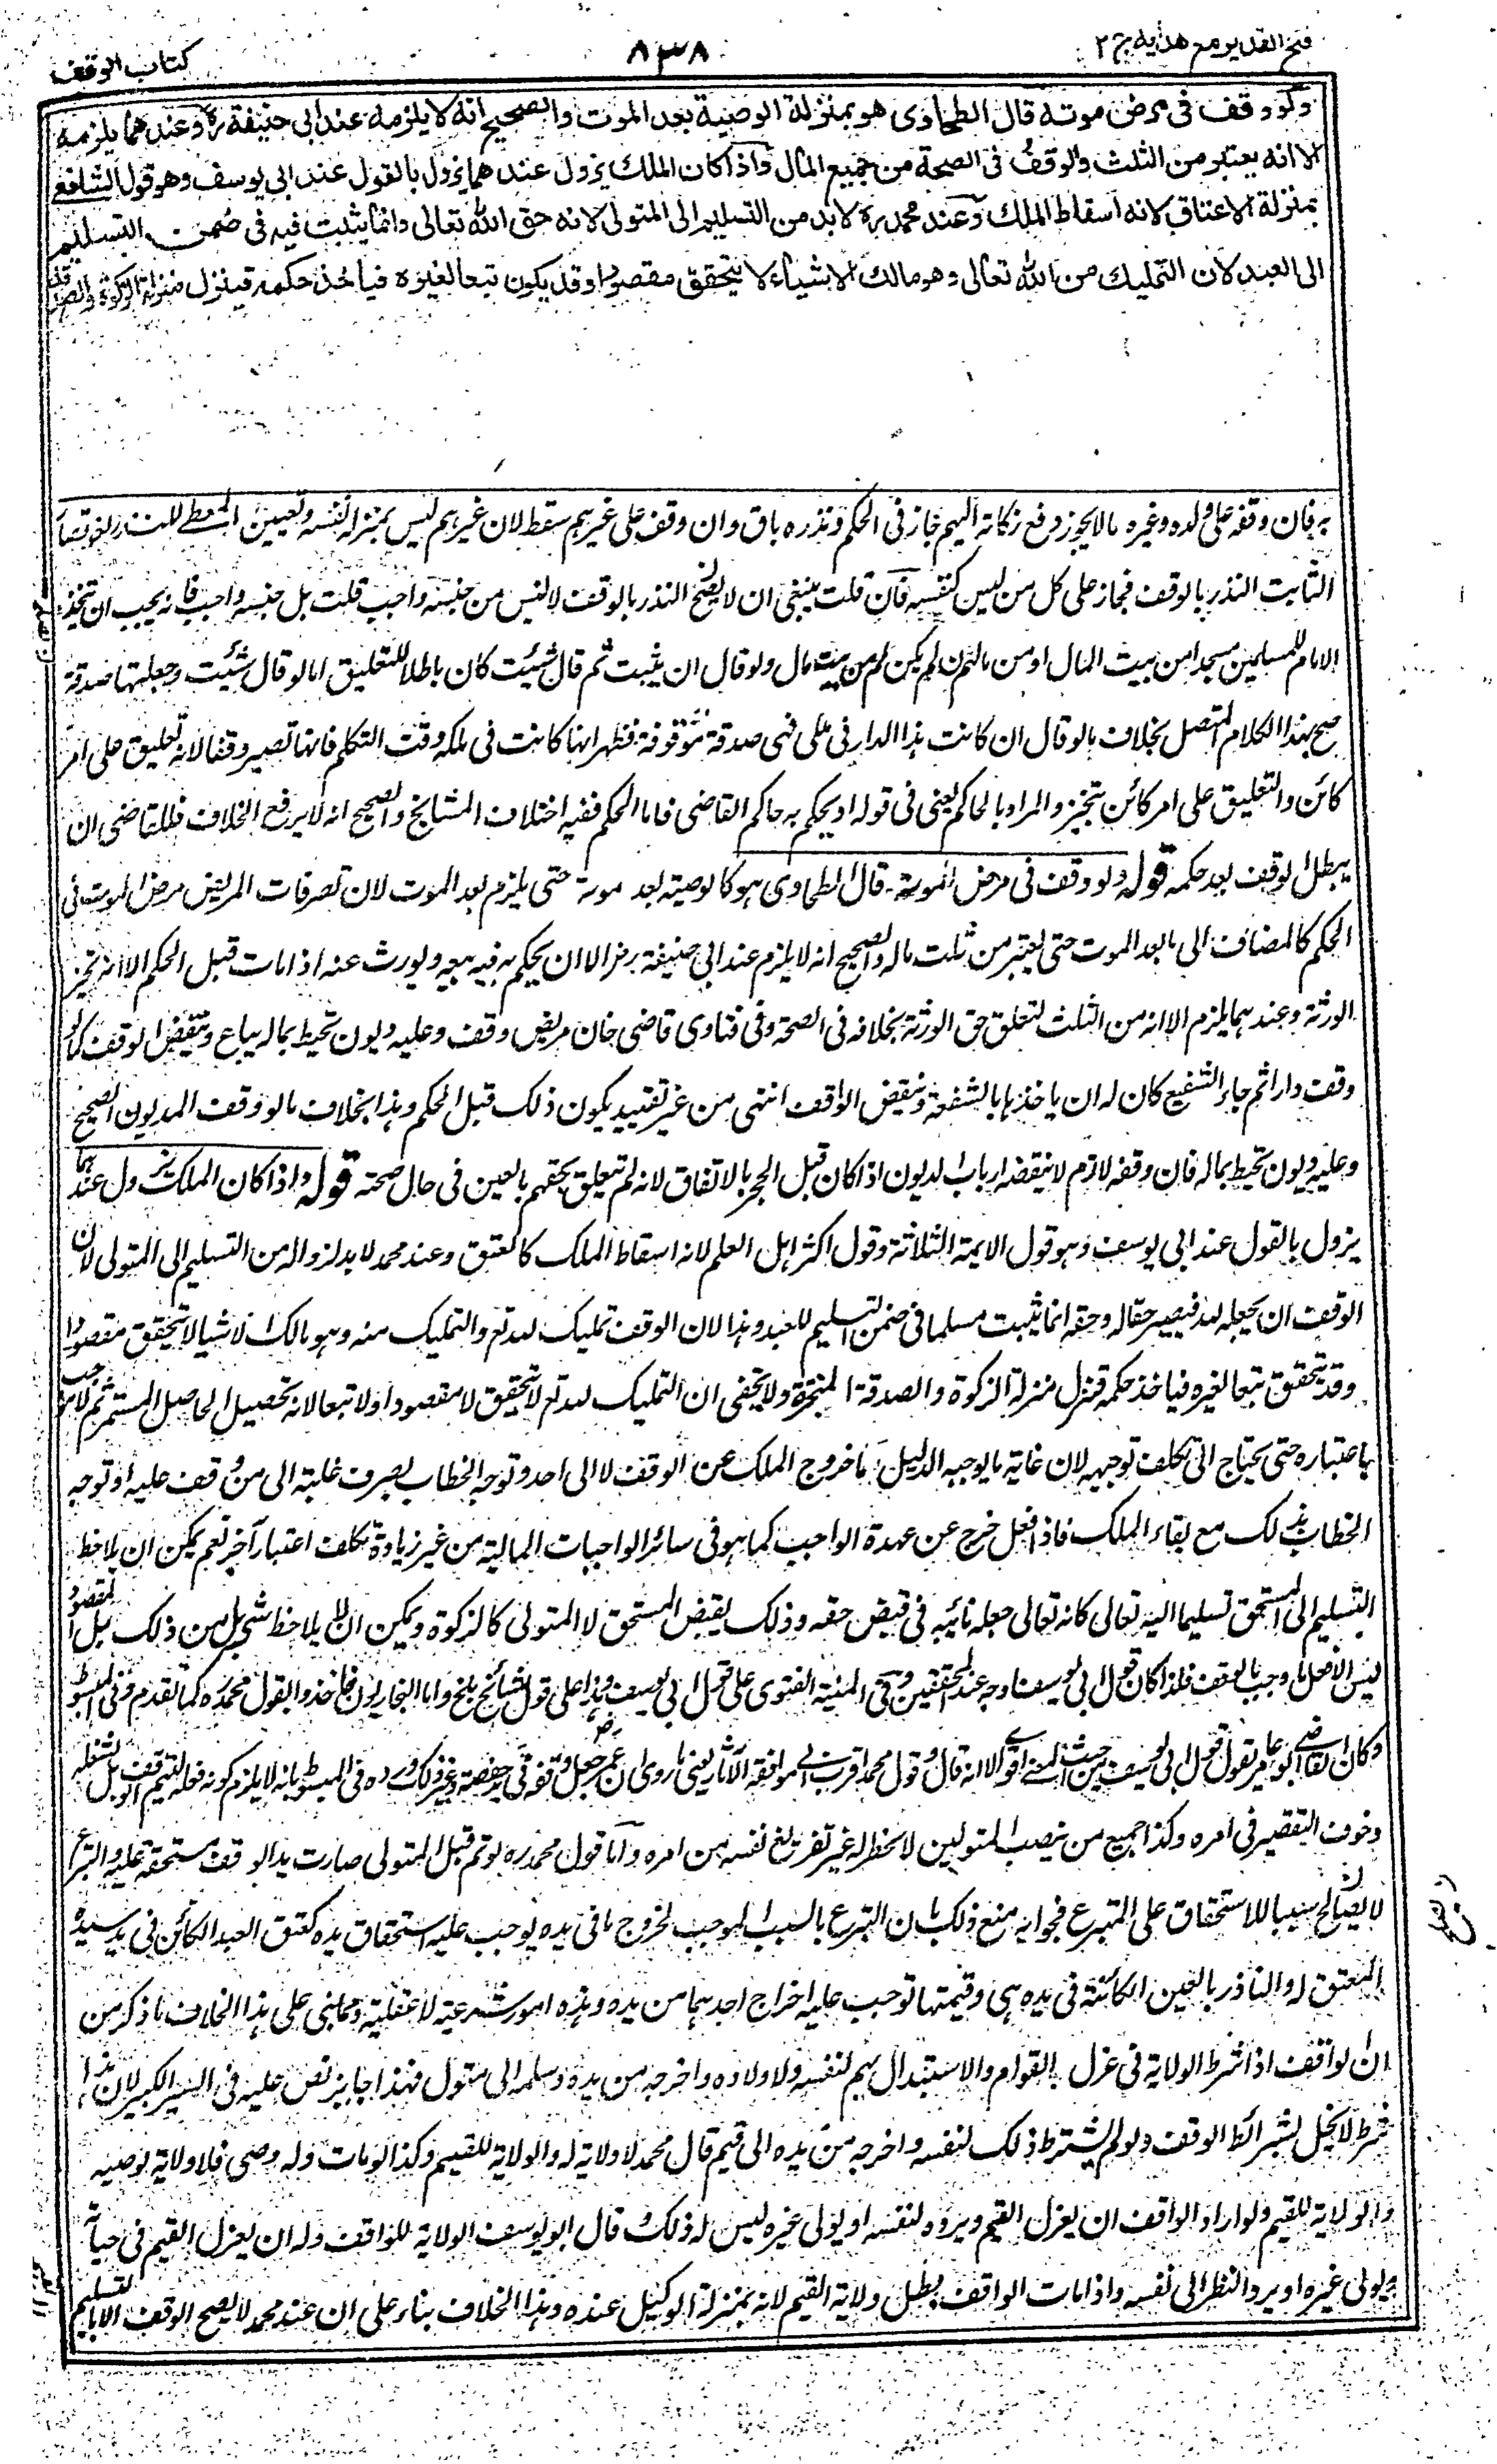 فتح القدير مع هدايه ج ٢
٨٣٨
كتاب الوقف
ولو وقف في مرض موته قال الطحاوي هو بمنزلة الوصية بعد الموت والصحيح انه لا يلزمه عند ابي حنيفة ره وعندهما يلزمه
الا انه يعتبر من الثلث والوقف في الصحة من جميع المال واذا كان الملك يزول عندهما يزول بالقول عند ابي يوسف وهو قول الشافعي
بمنزلة الاعتاق لانه اسقاط الملك وعند محمد ره لا بد من التسليم الى المتولى لانه حق الله تعالى وانما يثبت فيه في ضمن التسليم
الى العبد لان التمليك من الله تعالى وهو مالك الاشياء لا يتحقق مقصودا وقد يكون تبعا لغيره فيأخذ حكمه فينزل منزلة الزكوة والصدقة
به فان وقفه على ولده وغيره ممن لا يجوز دفع زكاته اليهم جاز في الحكم ونذره باق وان وقف على غيرهم سقط لان غيرهم ليس بمنزلة نفسه وتعيين المعطى للنذر لغو
الثابت النذر بالوقف فجاز على كل من ليس كنفسه فان قلت ينبغي ان لا يصح النذر بالوقف لانه ليس من جنسه واجب قلت بل من جنسه واجب فانه يجب ان يتخذ
الامام للمسلمين مسجدا من بيت المال او من مالهم ان لم يكن لهم بيت مال ولو قال ان شئت ثم قال شئت كان باطلا للتعليق اما لو قال شئت وجعلتها صدقة
صح بهذا الكلام المتصل بخلاف ما لو قال ان كانت هذه الدار في ملكي فهي صدقة موقوفة فظهر انها كانت في ملكه وقت التكلم فانها تصير وقفا لانه تعليق على امر
كائن والتعليق على امر كائن تنجيز والمراد بالحاكم يعني في قوله او يحكم به حاكم القاضي فاما المحكم ففيه اختلاف المشايخ والصحيح انه لا يرفع الخلاف فللقاضي ان
يبطل الوقف بعد حكمه قوله ولو وقف في مرض الموت قال الطحاوي هو كالوصية بعد موته حتى يلزم بعد الموت لان تصرفات المريض مرض الموت في
الحكم كالمضاف الى ما بعد الموت حتى يعتبر من ثلث ماله والصحيح انه لا يلزم عند ابي حنيفة رض الا ان يحكم به فيبيعه ويورث عنه اذا مات قبل الحكم الا ان تجيز
الورثة وعندهما يلزم الا انه من الثلث لتعلق حق الورثة بخلافه في الصحة وفي فتاوى قاضي خان مريض وقف وعليه ديون تحيط بماله يباع وينقض الوقف كما لو
وقف دارا ثم جاء الشفيع كان له ان ياخذها بالشفعة وينقض الوقف انتهى من غير تقييد بكون ذلك قبل الحكم وهذا بخلاف ما لو وقف المديون الصحيح
وعليه ديون تحيط بماله فان وقفه لازم لا ينقضه ارباب الديون اذا كان قبل الحجر بالاتفاق لانه لم يتعلق حقهم بالعين في حال صحته قوله واذا كان الملك يزول عندهما
يزول بالقول عند ابي يوسف وهو قول الايمة الثلاثة وقول اكثر اهل العلم لانه اسقاط الملك كالعتق وعند محمد لا بد لزواله من التسليم الى المتولى لان
الوقف ان يجعله لله فيصير حقا له وحقه انما يثبت مسلما في ضمن التسليم للعبد وهذا لان الوقف تمليك لله تع والتمليك منه وهو مالك الاشيا لا يتحقق مقصودا
وقد يتحقق تبعا لغيره فياخذ حكمه فنزل منزلة الزكوة والصدقة المنجزة ولا يخفى ان التمليك لله تع لا يتحقق لا مقصودا ولا تبعا لانه تحصيل الحاصل المستمر ثم لا موجب
باعتباره حتى يحتاج الى تكلف توجيهه لان غاية ما يوجبه الدليل اما خروج الملك عن الوقف لا الى احد وتوجه الخطاب بصرف غلته الى من وقف عليه او توجه
الخطاب بذلك مع بقاء الملك فاذا فعل خرج عن عهدة الواجب كما هو في سائر الواجبات المالية من غير زيادة تكلف اعتبار آخر نعم يمكن ان يلاحظ
التسليم الى المستحق تسليما اليه تعالى كانه تعالى جعله نائبه في قبض حقه وذلك بقبض المستحق لا المتولى كالزكوة ويمكن ان لا يلاحظ شيء من ذلك بل المقصود
ليس الا فعل ما وجب بالوقف فلذا كان قول ابي يوسف اوجه عند المحققين وفي المنية الفتوى على قول ابي يوسف وهذا على قول مشائخ بلخ واما البخاريون فاخذوا بقول محمد ره كما تقدم وفي المبسوط
وكان القاضي ابو عاصم يقول قول ابي يوسف من حيث المعنى اقوى الا انه قال وقول محمد اقرب الى موافقة الآثار يعني ما روى ان عمر رض جعل وقفه في يد حفصة وغير ذلك ورده في المبسوط بانه لا يلزم كونه فعله ليتم الوقف بل لشغله
وخوف التقصير في امره وكذا جميع من ينصب المتولين لا يخطر له غير تفريغ نفسه من امره واما قول محمد ره لو تم قبل المتولى صارت يد الواقف مستحقة عليه والتبرع
لا يصلح سببا للاستحقاق على المتبرع فجوابه منع ذلك بان التبرع بالسبب الموجب لخروج ما في يده يوجب عليه استحقاق يده كعتق العبد الكائن في يد سيده
المعتق له والناذر بالعين الكائنة في يده هي وقيمتها توجب عليه اخراج احدهما من يده وهذه امور شرعية لا عقلية ومما بنى على هذا الخلاف ما ذكر من
ان الواقف اذا شرط الولاية في عزل القوام والاستبدال بهم لنفسه ولاولاده واخرجه من يده وسلمه الى متول فهذا جايز نص عليه في السير الكبير لان هذا
شرط لا يخل بشرائط الوقف ولو لم يشترط ذلك لنفسه واخرجه من يده الى قيم قال محمد لا ولاية له والولاية للقيم وكذا لو مات وله وصي فلا ولاية لوصيه
والولاية للقيم ولو اراد الواقف ان يعزل القيم ويرده لنفسه او يولى غيره ليس له ذلك وقال ابو يوسف الولاية للواقف وله ان يعزل القيم في حياته
ويولى غيره او يرد النظر الى نفسه واذا مات الواقف بطل ولاية القيم لانه بمنزلة الوكيل عنده وهذا الخلاف بناء على ان عند محمد لا يصح الوقف الا بالتسليم